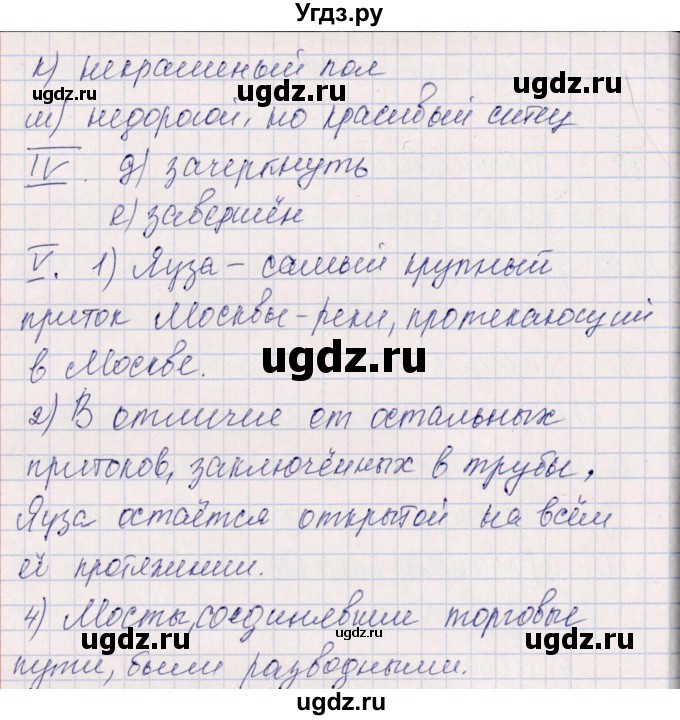 Угдз.ру
к) некрашеный пол
ш) недорогой, но красивый ситец
IV. д) зачеркнуть
е) завершён
V. 1) Яуза – самый крупный
приток Москвы-реки, протекающий
в Москве.
2) В отличие от остальных
притоков, заключённых в трубы,
Яуза остаётся открытой на всём
её протяжении.
4) Мосты, соединявшие торговые
пути, были разводными.
ugdz.ru
ugdz.ru
ugdz.ru
ugdz.ru
ugdz.ru
ugdz.ru
ugdz.ru
ugdz.ru
ugdz.ru
ugdz.ru
ugdz.ru
ugdz.ru